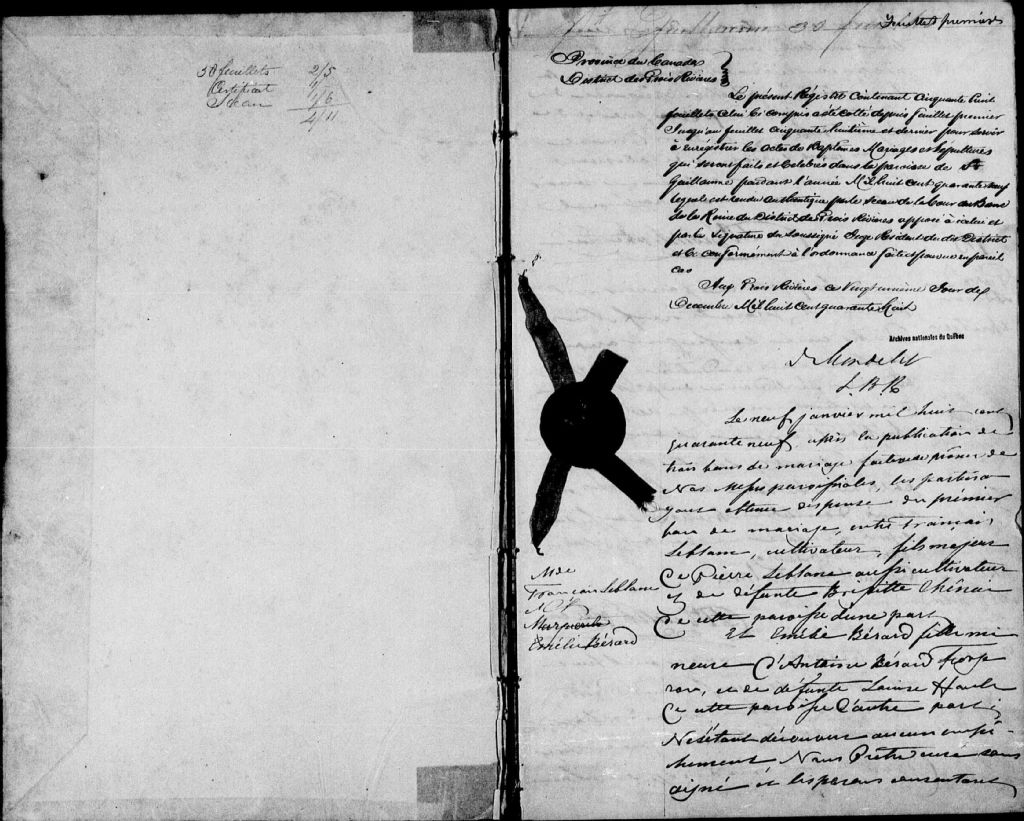 58 feuillets 2/5
Certificat 1/
Sceau 1/6
4/11
Feuillet premier
Province du Canada
District des Trois Rivières
Le présent Régistre contenant Cinquante huit
feuillets celui ci compris a été cotté depuis feuillet premier
Jusqu'au feuillet cinquante huitième et dernier pour servir
à enrégistrer les actes de Baptêmes Mariages et sépultures
qui seront faits et célébrés dans la paroisse de St
Guillaume pendant l'année Mil huit cent quarante neuf
lequel est rendu authentique par le Sceau de la Cour du Banc
de la Reine du District des Trois Rivières apposé à icelui et
par la Signature du Soussigné Juge Résidant du dit District
et ce conformément à l'ordonnance faite et pourvue en pareil
cas
Aux Trois Rivières ce Vingt unième Jour de
Décembre Mil huit cent quarante huit
Archives nationales du Québec
D Mondelet
J. B. R
Le neuf janvier mil huit cent
quarante neuf, après la publication de
trois bans de mariage faite au prône de
Nos Messes paroissiales, les parties
ayant obtenu dispense du prémier
ban de mariage, entre François
Leblanc, cultivateur, fils majeur
De Pierre Leblanc aussi cultivateur
et de défunte Brigitte
De cette paroisse d'une part
Et Emélie Bérard fille mi
neure D'Antoine Bérard forge
ron, et de défunte Louise Houle
De cette paroisse d'autre part;
N'esétant découvert aucun empê-
chement Nous Prêtre curé sous
signé et les parens consentant
M de
François Leblanc
&
Marguerite
Emélie Bérard